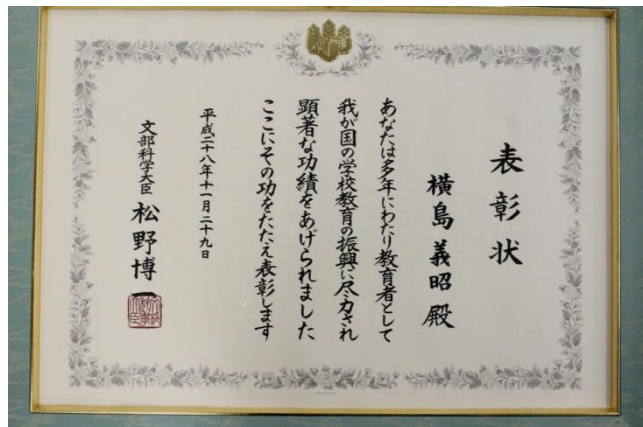 表彰状
横島義昭殿
あなたは多年にわたり教育者として
我が国の学校教育の振興に尽力され
顕著な功績をあげられました
ここにその功をたたえ表彰します
平成二十八年十一月二十九日
文部科学大臣 松野博一